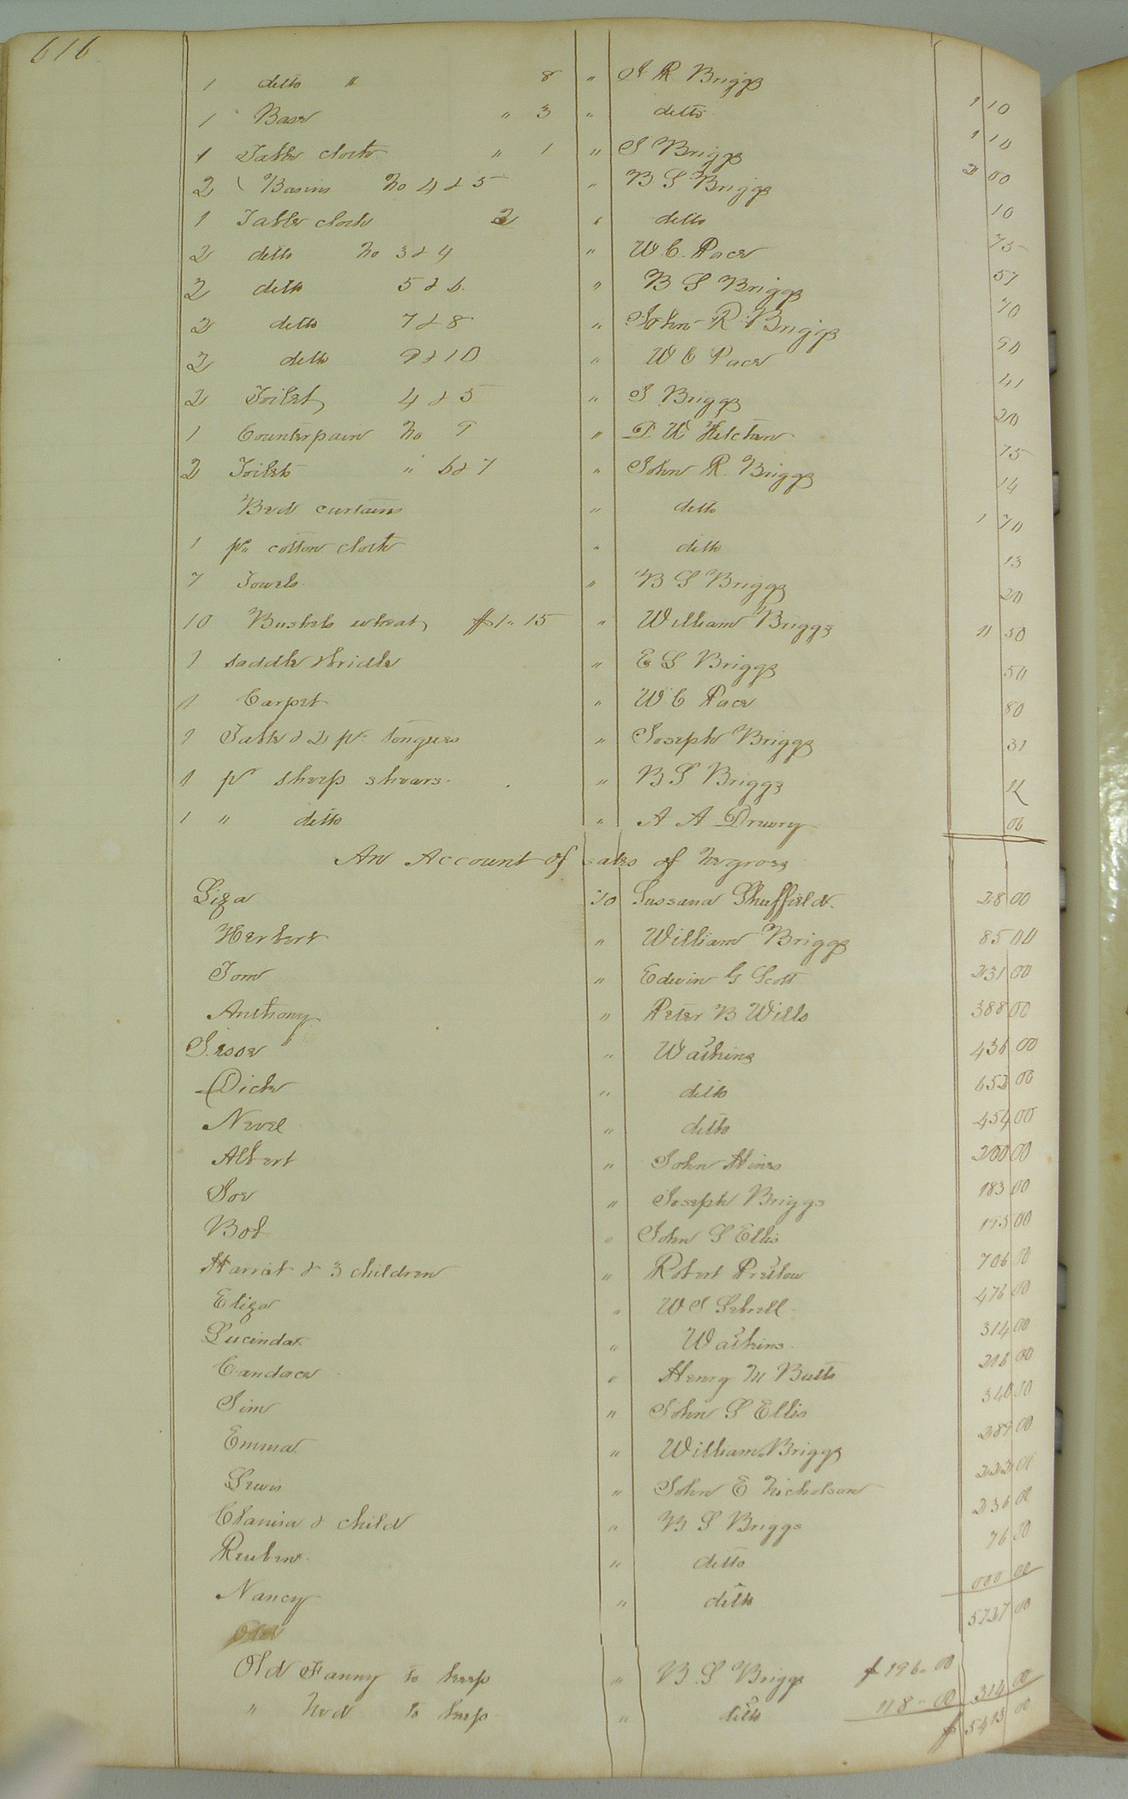 616
1 ditto " 8 " J R Briggs
1 Base " 3 " ditto 1 10
1 Table cloth " 1 " S Briggs 1 10
2 Basins No 4 & 5 " B S Briggs 2 00
1 Table cloth 2 " ditto 10
2 ditto No 3 & 4 " W. C. Pace 75
2 ditto 5 & 6. " B S Briggs 51
2 ditto 7 & 8 " John R Briggs 70
2 ditto 9 & 10 " W C Pace 90
2 Toilet 4 & 5 " S Briggs 41
1 Counterpain No 9 " D W Kitchen 20
2 Toilets " 6 & 7 " John R. Briggs 75
Bed curtains " ditto 14
1 ps cotton cloth " ditto 1 70
7 Towels " B S Briggs 13
10 Bushels wheat $1.15 " William Briggs 20
1 saddle & bridle " E S Briggs 11 50
1 Carpet " W C Pace 50
1 Table & 2 pr tongues " Joseph Briggs 80
1 pr sheep shears " B S Briggs 31
1 " ditto " A A Drewry
06
An Account of sales of Negroes
Liza to Sussana Shuffield. 28 00
Herbert " William Briggs 85 00
Tom " Edwin G Scott 231 00
Anthony " Peter B Wills 388 00
" Watkins 436 00
Dick " ditto 652 00
Nevel " ditto 454 00
Albert " John Hines 200 00
Joe " Joseph Briggs 183 00
Bob " John S Ellis 195 00
Harriat & 3 children " Robert Pretlow 706 00
Eliza " W S 476 00
Lucinda " Watkins 314 00
Candace " Henry M Butts 216 00
Jim " John S Ellis 340 00
Emma " William Briggs 289 00
Lewis " John E Nicholson 222 00
& child " B S Briggs 236 00
Reuben " ditto 76 00
Nancy " ditto 000 00
5727 00
Old Fanny to keep " B. S Briggs $196-00
" Ned to keep " ditto 118-00 314 00
$5413 00